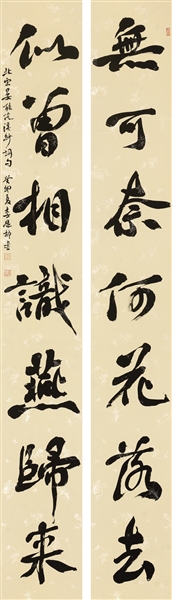 無可奈何花落去
似曾相識燕歸来
北宋晏殊浣溪紗詞句